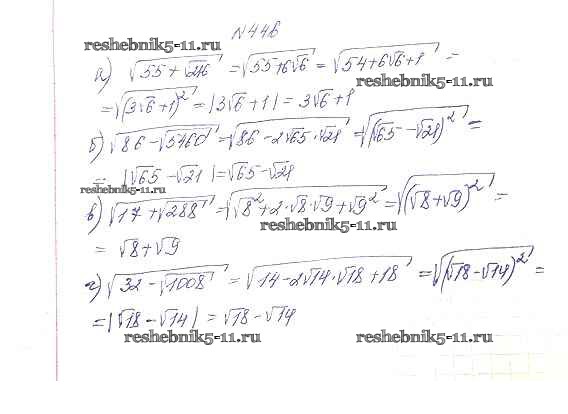 N446
reshebnik5-11.ru
а) √55 + √216 = √55+6√6 = √54+6√6+1 =
= √(3√6+1)² = |3√6+1| = 3√6+1
б) √86 - √5460 = √86 - 2√65·√21 = √(√65 - √21)² =
= |√65 - √21| = √65 - √21
reshebnik5-11.ru
в) √17 + √288 = √√8² + 2·√8·√9 + √9² = √(√8+√9)² =
reshebnik5-11.ru
= √8 + √9
г) √32 - √1008 = √14 - 2√14·√18 + 18 = √(√18 - √14)² =
= |√18 - √14| = √18 - √14
reshebnik5-11.ru
reshebnik5-11.ru